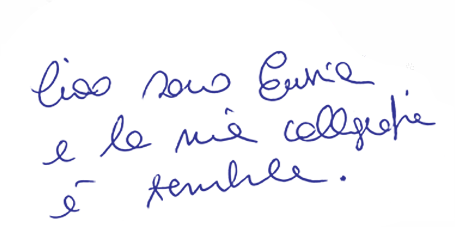 Ciao sono
e la mia calligrafia
è terribile.